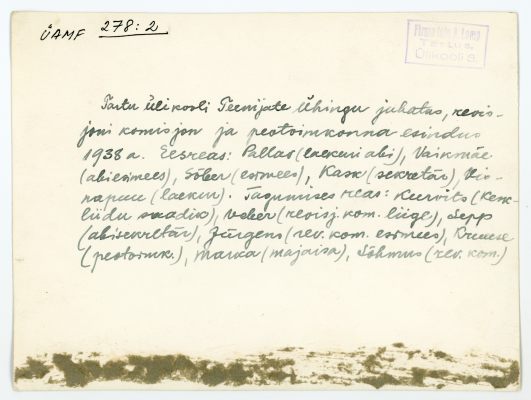 ÜAMF 278:2
Tartu,
Ülikooli 9.
Tartu Ülikooli Teenijate Ühingu juhatus, revis-
joni komisjon ja peotoimkonna esindus
1938 a. Eesreas: Pallas (laekuri abi), Vaikmäe
(abiesimees), Sõber (esimees), Kask (sekretär), Vii-
napuu (laekur). Tagumises reas: Kurvits (Kesk-
liidu saadik), Weber (revisj. kom. liige), Sepp
(abisekretär), Jürgens (rev. kom. esimees), Kruuse
(peotoimk.), Marka (majaisa), Sõhmus (rev. kom.)